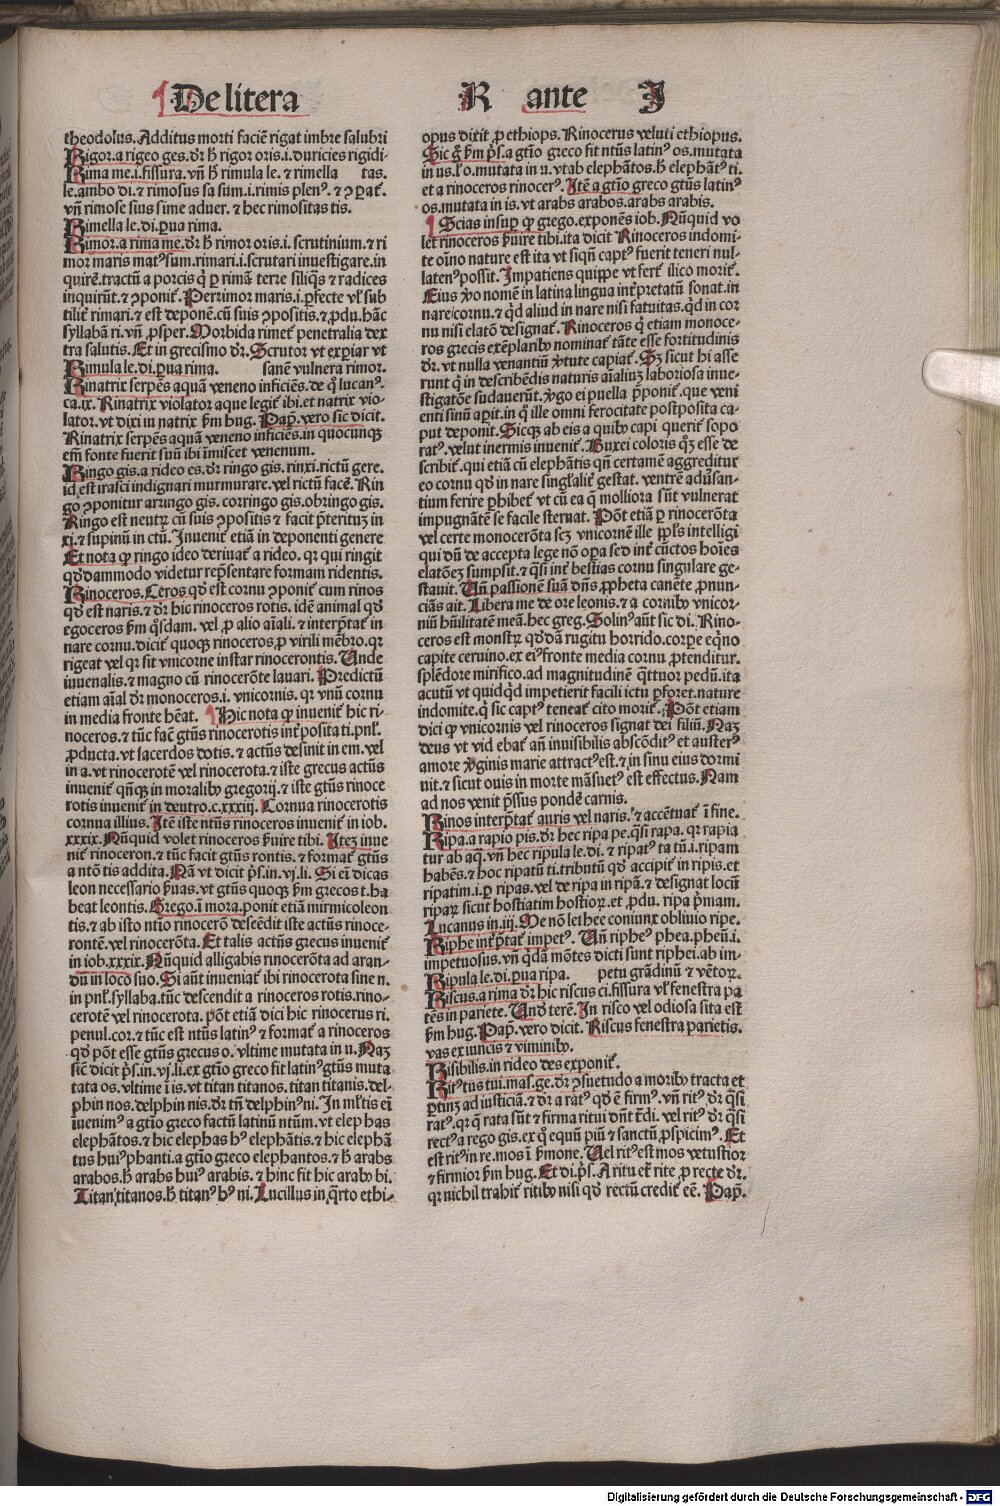 De litera R ante I
theodolus. Additus morti faciē rigat imbre salubri
Rigor. a rigeo ges. dr̄ h̄ rigor oris. i. duricies rigidi-
Rima me. i. fissura. vn̄ h̄ rimula le. ⁊ rimella tas.
le. ambo di. ⁊ rimosus sa sum. i. rimis plenꝰ. ⁊ ꝯparat̄.
vn̄ rimose sius sime aduer. ⁊ hec rimositas tis.
Rimella le. di. ꝑua rima.
Rimor. a rima me. dr̄ h̄ rimor oris. i. scrutinium. ⁊ ri
mor maris matꝰsum. rimari. i. scrutari inuestigare. in
quirē. tractū a porcis q̄ ꝑ rimā terre siliq̄s ⁊ radices
inquirūt. ⁊ ꝯponit̄. Perrimor maris. i. ꝑfecte vl̄ sub
tiliē rimari. ⁊ est deponē. cū suis ꝯpositis. ⁊ ꝓdu. hāc
syllabā ri. vn̄ ꝓsper. Morbida rimet̄ penetralia dex
tra salutis. Et in grecismo dr̄. Scrutor vt exꝑiar vt
Rimula le. di. ꝑua rima. sanē vulnera rimor.
Rinatrix serpēs aquā veneno inficiēs. de q̄ lucanꝰ.
ca. ix. Rinatrix violator aque legit̄ ibi. et natrix vio-
lator. vt dixi in natrix ẜm hug. Pap̄. vero sic dicit.
Rinatrix serpēs aquā veneno inficiēs. in quocunqꝫ
em̄ fonte fuerit suū ibi īmiscet venenum.
Ringo gis. a rideo es. dr̄ ringo gis. rinxi. rictū gere.
id est irasci indignari murmurare. vel rictū facē. Rin
go ꝯponitur arringo gis. corringo gis. obringo gis.
Ringo est neutꝝ cū suis ꝯpositis ⁊ facit p̄teritūꝫ in
xi. ⁊ supinū in ctū. Inuenit̄ etiā in deponenti genere
Et nota ꝙ ringo ideo deriuat̄ a rideo. qꝛ qui ringit
qd̄dammodo videtur rep̄sentare formam ridentis.
Rinoceros. Ceros qd̄ est cornu ꝯponit̄ cum rinos
qd̄ est naris. ⁊ dr̄ hic rinoceros rotis. idē animal qd̄
egoceros ẜm q̄sdam. vel ꝓ alio aīali. ⁊ interp̄tat̄ in
nare cornu. dicit̄ quoqꝫ rinoceros ꝓ virili mēbro. qꝛ
rigeat vel qꝛ sit vnicorne instar rinocerontis. Unde
iuuenalis. ⁊ magno cū rinocerōte lauari. Predictū
etiam aīal dr̄ monoceros. i. vnicornis. qꝛ vnū cornu
in media fronte hēat. Hic nota ꝙ inuenit̄ hic ri-
noceros. ⁊ tūc fac̄ gtūs rinocerotis int̄posita ti. pnl̄.
ꝓducta. vt sacerdos dotis. ⁊ actūs desinit in em. vel
in a. vt rinocerotē vel rinocerota. ⁊ iste grecus actūs
inuenit̄ qn̄qꝫ in moralibꝫ gregorij. ⁊ iste gtūs rinoce
rotis inuenit̄ in deutro. c. xxxiij. Cornua rinocerotis
cornua illius. Itē iste ntūs rinoceros inuenit̄ in iob.
xxxix. Nūquid volet rinoceros ẜuire tibi. Iteꝫ inue
nit̄ rinoceron. ⁊ tūc facit gtūs rontis. ⁊ format̄ gtūs
a ntō tis addita. Nā vt dicit p̄s. in. vj. li. Si em̄ dicas
leon necessario ẜuas. vt gtūs quoqꝫ ẜm grecos t. ha
beat leontis. Grego. ī mora. ponit etiā mirmicoleon
tis. ⁊ ab isto ntio rinocerō descēdit iste actūs rinoce-
rontē. vel rinocerōta. Et talis actūs grecus inuenit̄
in iob. xxxix. Nūquid alligabis rinocerōta ad aran-
dū in loco suo. Si aūt inueniat̄ ibi rinocerota sine n.
in pnl̄. syllaba. tūc descendit a rinoceros rotis. rino-
cerotē vel rinocerota. pōt etiā dici hic rinocerus ri.
penul. cor. ⁊ tūc est ntūs latinꝰ ⁊ format̄ a rinoceros
qd̄ pōt esse gtūs grecus o. vltime mutata in u. Naꝫ
sic̄ dicit p̄s. in. vj. li. ex gtio greco fit latinꝰ gtūs muta
tata os. vltime ī is. vt titan titanos. titan titanis. del-
phin nos. delphin nis. dr̄ tn̄ delphinꝰ ni. In ml̄tis em̄
īuenimꝰ a gtio greco factū latinū ntūm. vt elephas
elephātos. ⁊ hic elephas hꝰ elephātis. ⁊ hic elephā
tus huiꝰ phanti. a gtio greco elephantos. ⁊ h̄ arabs
arabos. h̄ arabs huiꝰ arabis. ⁊ hinc fit hic arabꝰ bi.
Titan titanos. h̄ titanꝰ hꝰ ni. Lucillus in q̄rto ethi-
opus dixit ꝓ ethiops. Rinocerus veluti ethiopus.
Sic g̊ ẜm p̄s. a gtio greco fit ntūs latinꝰ os. mutata
in us. l̓ o. mutata in u. vt ab elephātos. h̄ elephātꝰ ti.
et a rinoceros rinocerꝰ. Itē a gtio greco gtūs latinꝰ
os. mutata in is. vt arabs arabos. arabs arabis.
Scias insuꝑ ꝙ grego. exponēs iob. Nūquid vo
let rinoceros ẜuire tibi. ita dicit Rinoceros indomi-
te oīno nature est ita vt siqn̄ captꝰ fuerit teneri nul-
latenꝰ possit. Impatiens quippe vt fert̄ ilico morit̄.
Eius ꝟo nomē in latina lingua int̄pretatū sonat. in
nare cornu. ⁊ qd̄ aliud in nare nisi fatuitas. qd̄ in cor
nu nisi elatō designat̄. Rinoceros q̄ etiam monoce-
ros grecis exēplaribꝰ nominat̄ tāte esse fortitudinis
dr̄. vt nulla venantiū ꝟtute capiat̄. Sꝫ sicut hi asse
runt q̄ in describēdis naturis aīaliuꝫ laboriosa inue-
stigatōe sudauerūt. ꝟgo ei puella ꝓponit̄. que veni
enti sinū aꝑit. in q̄ ille omni ferocitate postposita ca-
put deponit. Sicqꝫ ab eis a quibꝰ capi querit̄ sopo
ratꝰ. velut inermis inuenit̄. Buxei coloris qꝫ esse de
scribit̄. qui etiā cū elephātis qn̄ certamē aggreditur
eo cornu qd̄ in nare singl̄arit̄ gestat. ventrē aduersan-
tium ferire ꝑhibet̄ vt cū ea q̄ molliora sūt vulnerat
impugnātē se facile sternat. Pōt etiā ꝑ rinocerōta
vel certe monocerōta scꝫ vnicornē ille ppl̄s intelligi
qui dū de accepta lege nō oꝑa sed int̄ cūctos hoīes
elatōeꝫ sumpsit. ⁊ q̄si int̄ bestias cornu singulare ge-
stauit. Un̄ passionē suā dn̄s ꝓpheta canēte pronun-
ciās ait. Libera me de ore leonis. ⁊ a cornibꝰ vnicor-
niū hūilitatē meā. hec greg. Solinꝰ aūt sic di. Rino-
ceros est monstꝝ qd̄dā rugitu horrido. corꝑe eqno
capite ceruino. ex eiꝰ fronte media cornu ꝓtenditur.
splēdore mirifico. ad magnitudinē q̄ttuor pedū. ita
acutū vt quidqd̄ impetierit facili ictu ꝑforet. nature
indomite. q̄ sic captꝰ teneat̄ cito morit̄. Pōt etiam
dici ꝙ vnicornis vel rinoceros signat dei filiū. Naꝫ
deus vt vid ebat̄ an̄ inuisibilis abscōditꝰ et austerꝰ
amore ꝟginis marie attractꝰ est. ⁊ in sinu eius dormi
uit. ⁊ sicut ouis in morte māsuetꝰ est effectus. Nam
ad nos venit p̄ssus pondē carnis.
Rinos interp̄tat̄ auris vel naris. ⁊ accētuat̄ ī fine.
Ripa. a rapio pis. dr̄ hec ripa pe. q̄si rapa. qꝛ rapia
tur ab aq̄. vn̄ hec ripula le. di. ⁊ ripatꝰ ta tū. i. ripam
habēs. ⁊ hoc ripatū ti. tributū qd̄ accipit̄ in ripis. et
ripatim. i. ꝑ ripas. vel de ripa in ripā. ⁊ designat locū
ripaꝝ sicut hostiatim hostioꝝ. et ꝓdu. ripa p̄mam.
Lucanus in. iij. Me nō lethee coniunx obliuio ripe.
Riphe int̄p̄tat̄ impetꝰ. Un̄ ripheꝰ phea. pheū. i.
impetuosus. vn̄ q̄dā mōtes dicti sunt riphei. ab im-
Ripula le. di. ꝑua ripa. petu grādinū ⁊ vētoꝝ.
Riscus. a rima dr̄ hic riscus ci. fissura vl̄ fenestra pa
tēs in pariete. Und̄ terē. In risco vel odiosa sita est
ẜm hug. Pap̄. vero dicit. Riscus fenestra parietis.
vas ex iuncis ⁊ viminibꝰ.
Risibilis. in rideo des exponit̄.
Ritꝰ tus tui. mas. ge. dr̄ ꝯsuetudo a moribꝰ tracta et
ꝑtinꝫ ad iusticiā. ⁊ dr̄ a ratꝰ qd̄ ē firmꝰ. vn̄ ritꝰ dr̄ q̄si
ratꝰ. qꝛ q̄ rata sūt ⁊ firma ritui dn̄t t̄di. vel ritꝰ dr̄ q̄si
rectꝰ a rego gis. ex q̊ equū piū ⁊ sanctū ꝓspicimꝰ. Et
est ritꝰ in re. mos ī ẜmone. Uel ritꝰ est mos vetustior
⁊ firmior ẜm hug. Et di. p̄s. A ritu et̄ rite ꝓ recte dr̄.
qꝛ nichil trahit̄ ritibꝰ nisi qd̄ rectū credit̄ eē. Pap̄.
Digitalisierung gefördert durch die Deutsche Forschungsgemeinschaft - DFG